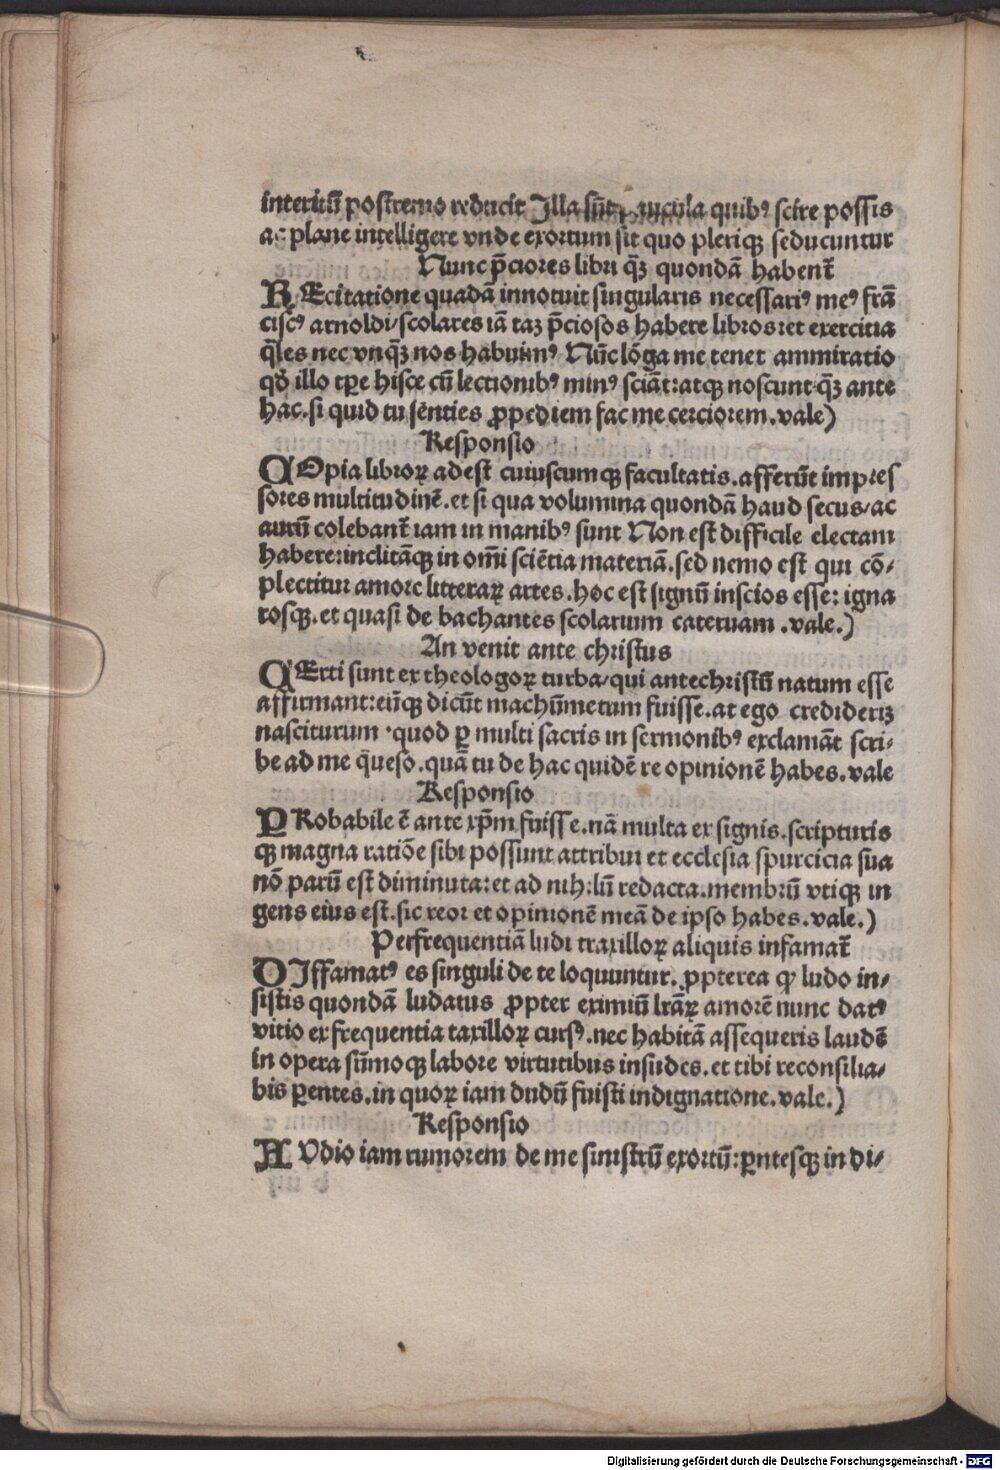 interitū postremo reducit Illa sūt paucula quibꝰ scire possis
ac plane intelligere vnde exortum sit quo plerique seducuntur
Nunc p̄ciores libri qȝ quondā habent᷑
REcitatione quadā innotuit singularis necessariꝰ meꝰ frā
ciscꝰ arnoldi/scolares iā taȝ p̄ciosos habere libros:et exercitia
q̄les nec vnqȝ nos habuimꝰ Nūc lōga me tenet ammiratio
qđ illo tꝑe hisce cū lectionibꝰ minꝰ sciāt:atqȝ noscunt qȝ ante
hac.si quid tu senties ꝓpediem fac me cerciorem.vale)
Responsio
COpia libroꝝ adest cuiuscumqȝ facultatis.afferūt impres
sores multitudinē.et si qua volumina quondā haud secus/ac
aurū colebant᷑ iam in manibꝰ sunt Non est difficile electam
habere:inclitāqȝ in om̄i sciētia materiā.sed nemo est qui cō/
plectitur amore litteraꝝ artes.hoc est signū inscios esse: igna
rosqȝ.et quasi de bachantes scolarium cateruam .vale.)
An venit ante christus
CErti sunt ex theologoꝝ turba/qui antechristū natum esse
affirmant:eūqȝ dicūt machūmetum fuisse.at ego crediderȝ
nasciturum .quod ꝑ multi sacris in sermonibꝰ exclamāt scri/
be ad me q̄eso.quā tu de hac quidē re opinionē habes.vale
Responsio
PRobabile ē ante xp̄m fuisse.nā multa ex signis.scripturis
qȝ magna ratiōe sibi possunt attribui et ecclesia spurcicia sua
nō parū est diminuta:et ad nihilū redacta.membrū vtiqȝ in
gens eius est.sic reor et opinionē meā de ipso habes.vale.)
Perfrequentiā ludi traxilloꝝ aliquis infamat᷑
DIffamatꝰ es singuli de te loquuntur.ꝓpterea ꝙ ludo in/
sistis quondā ludatus ꝓpter eximiū lr̄aꝝ amorē nunc datꝰ
vitio ex frequentia taxilloꝝ cursꝰ.nec habitā assequeris laudē
in opera sūmoqȝ labore virtutibus insudes.et tibi reconsilia/
bis ꝑentes.in quoꝝ iam dudū fuisti indignatione.vale.)
Responsio
AVdio iam rumorem de me sinistrū exortū:ꝑntesqȝ in di/
Digitalisierung gefördert durch die Deutsche Forschungsgemeinschaft - DFG